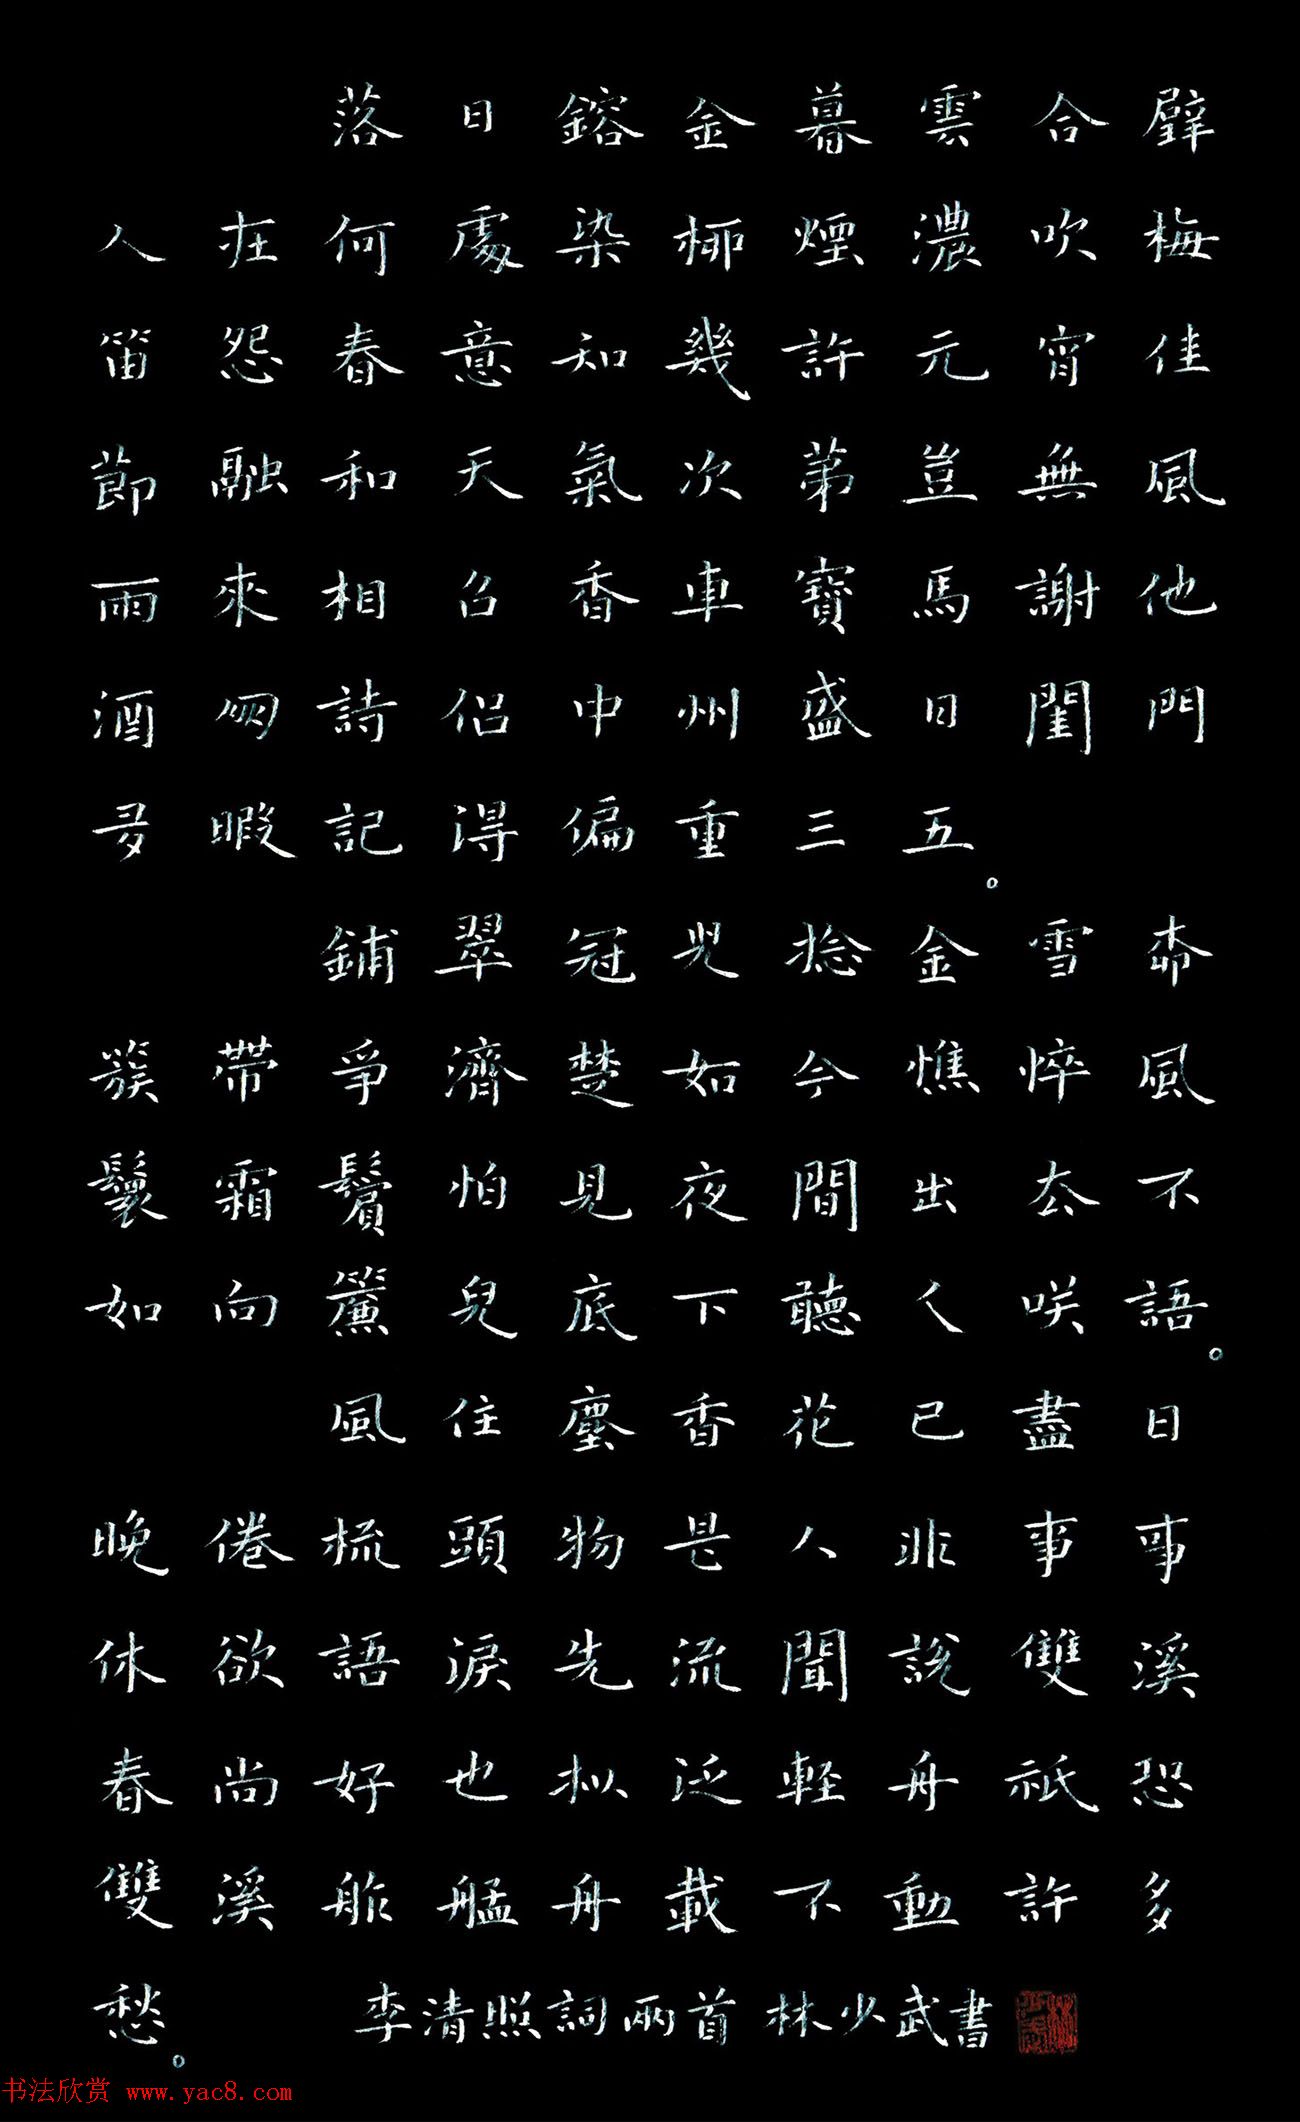 落日鎔金暮雲合璧
人在何處染柳煙濃吹梅
笛怨春意知幾許元宵佳
節融和天氣次第豈無風
雨來相召香車寶馬謝他
酒朋詩侶中州盛日閨門
多暇記得偏重三五。
鋪翠冠兒捻金雪柳
簇帶爭濟楚如今憔悴風
鬟霜鬢怕見夜間出去不
如向簾兒底下聽人咲語。
風住塵香花已盡日
晚倦梳頭物是人非事事
休欲語淚先流聞說雙溪
春尚好也拟泛輕舟祇恐
雙溪舴艋舟載不動許多
愁。 李清照詞兩首 林少武書
书法欣赏 www.yac8.com